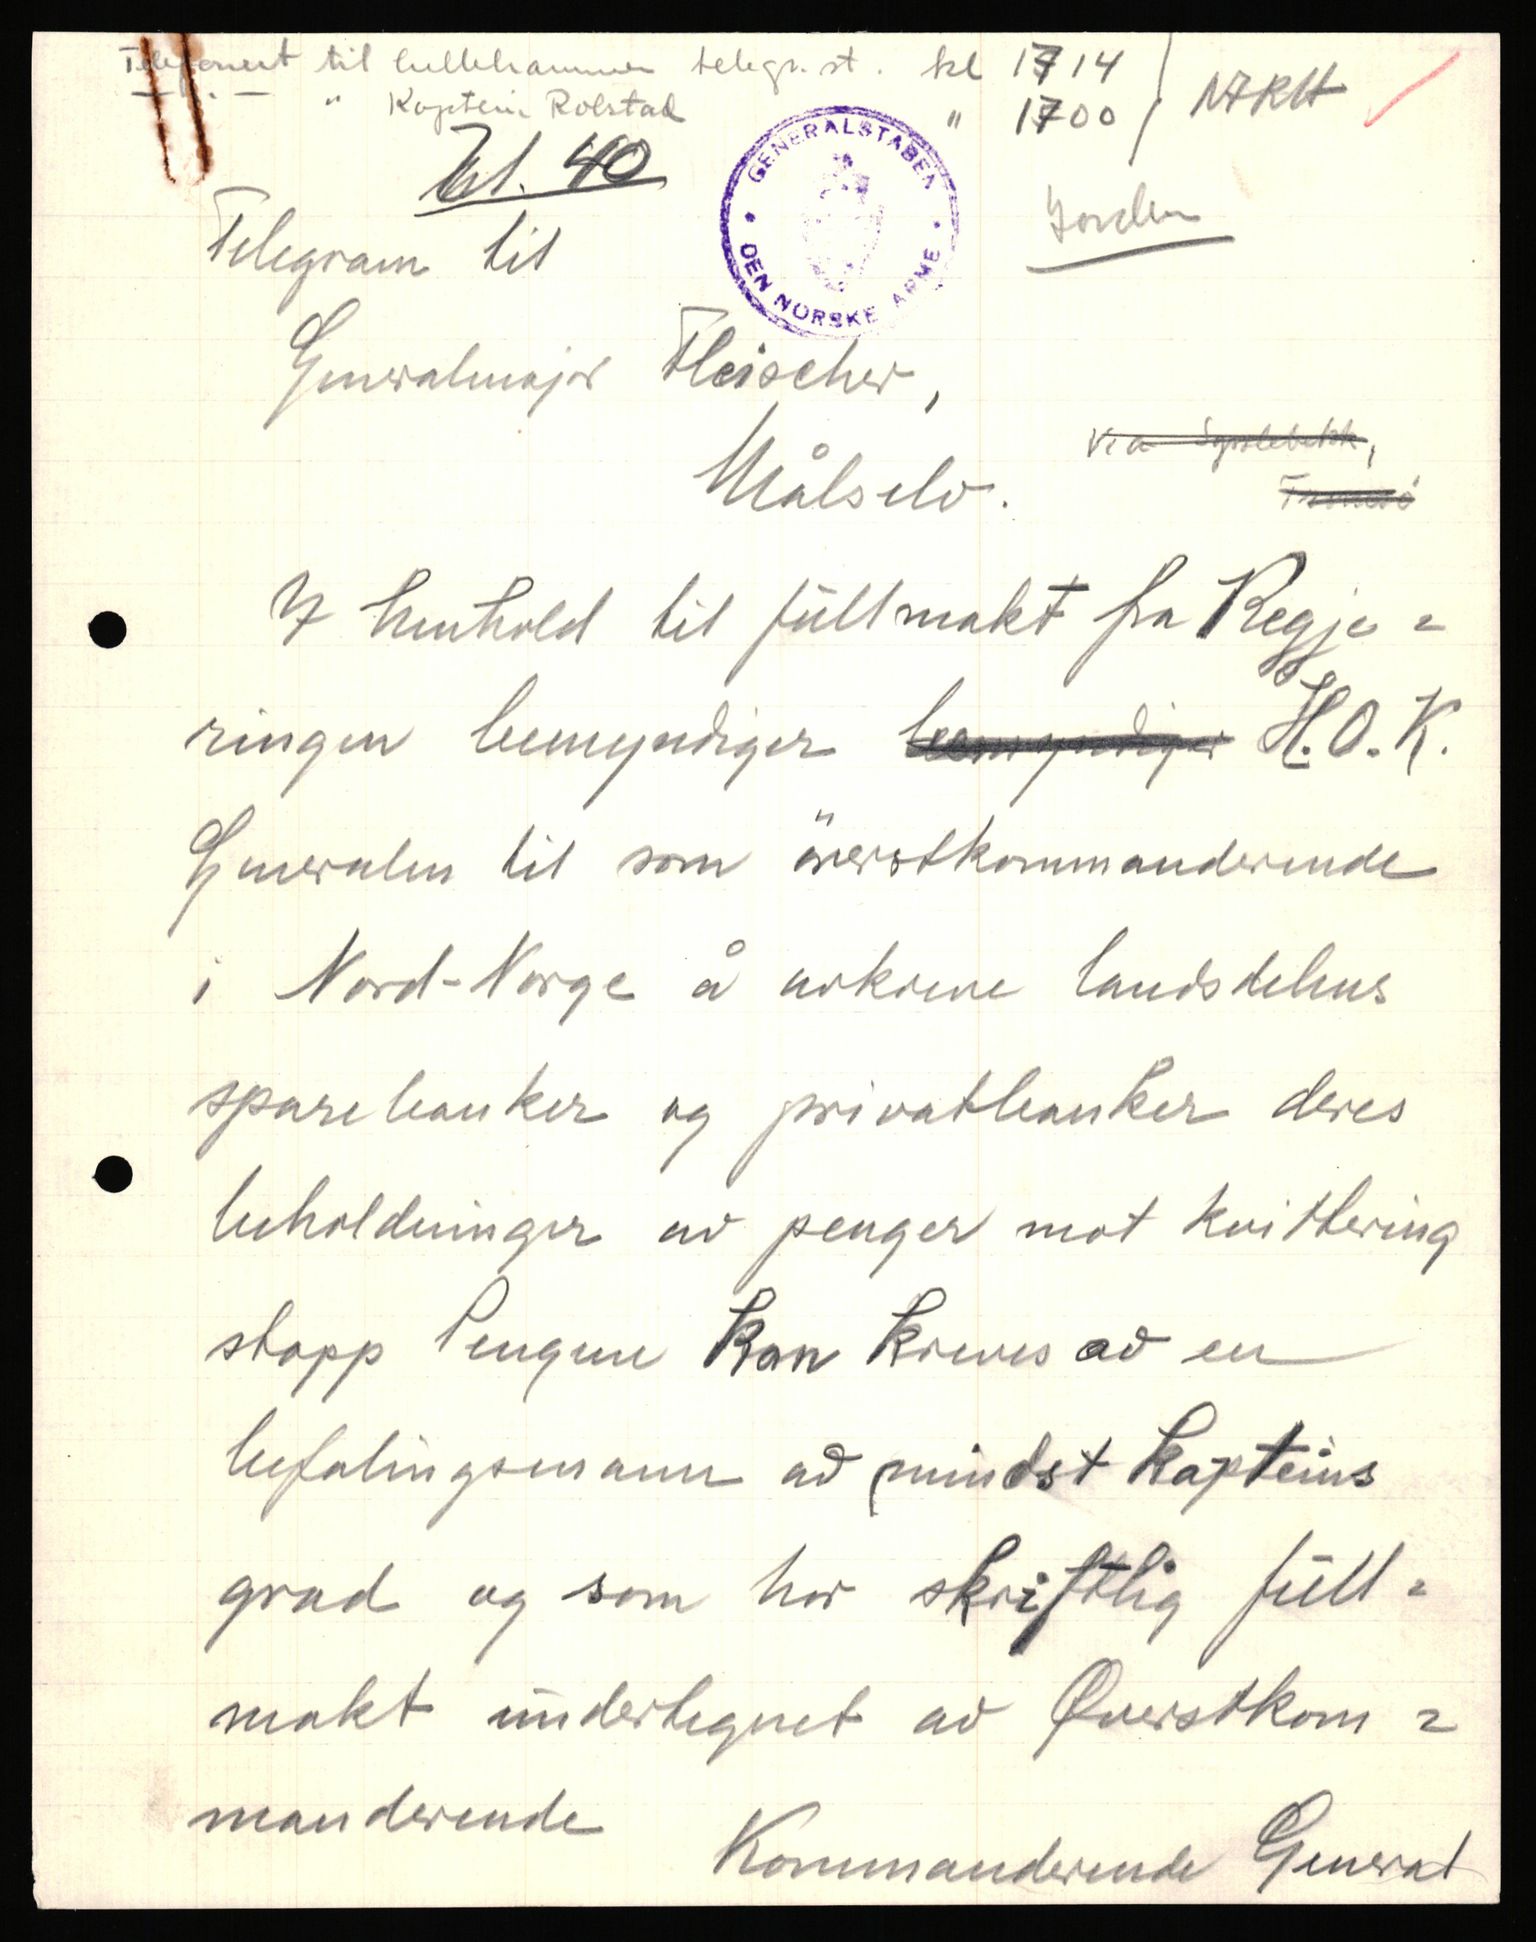 Telefonert til Lillehammer telegr. st. kl 1714
— " — " Kaptein Rolstad " 1700
Tel. 40
GENERALSTABEN
DEN NORSKE ARME
Telegram til
Generalmajor Fleischer,
Målselv.
via
Tromsö
I henhold til fullmakt fra Regje=
ringen bemyndiger bemyndiger H.O.K.
Generalen til som överstkommanderende
i Nord-Norge å avkreve landsdelens
sparebanker og privatbanker deres
beholdninger av penger mot kvittering
stopp Pengene kan kreves av en
befalingsmann av mindst kapteins
grad og som har skriftlig full=
makt undertegnet av Øverstkom=
manderende
Kommanderende General